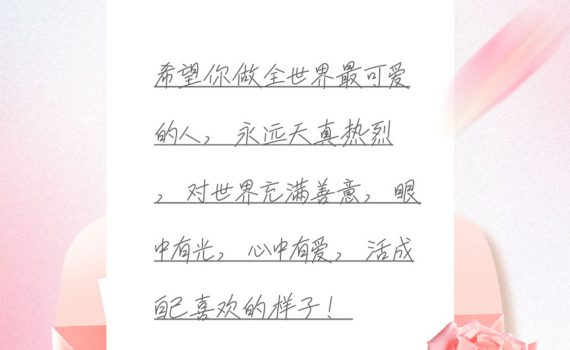 希望你做全世界最可爱
的人，永远天真热烈
，对世界充满善意，眼
中有光，心中有爱，活成
自己喜欢的样子！